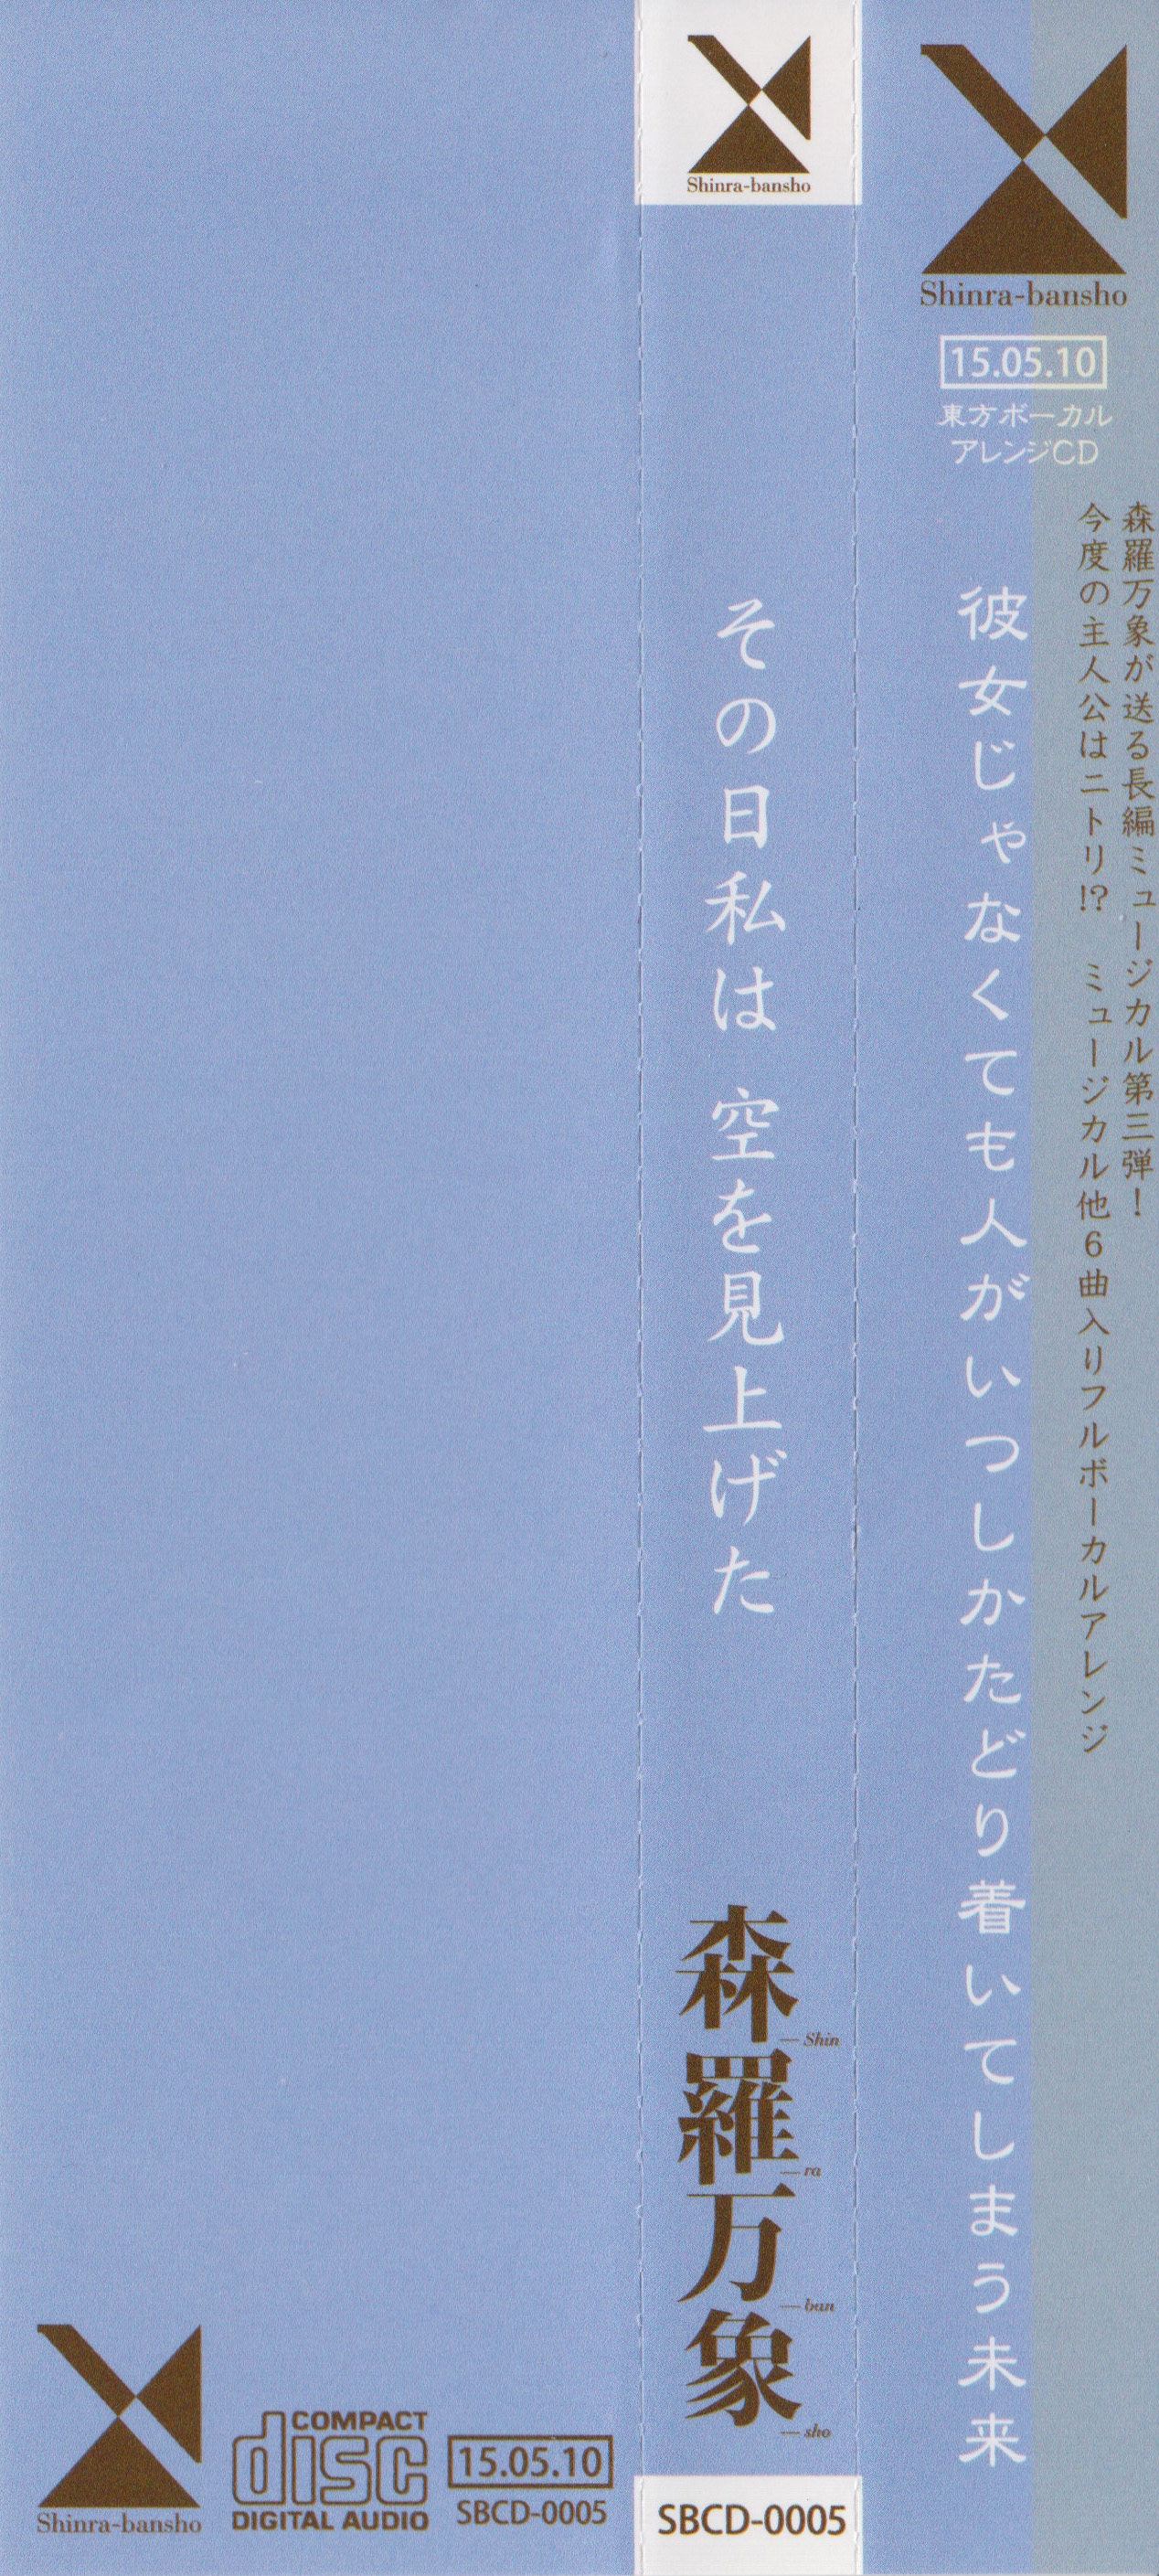 Shinra-bansho
15.05.10
東方ボーカル
アレンジCD
森羅万象が送る長編ミュージカル第三弾!
今度の主人公はニトリ!? ミュージカル他6曲入りフルボーカルアレンジ
彼女じゃなくても人がいつしかたどり着いてしまう未来
Shinra-bansho
その日私は 空を見上げた
森羅万象
Shin
ra
ban
sho
SBCD-0005
Shinra-bansho
COMPACT
disc
DIGITAL AUDIO
15.05.10
SBCD-0005